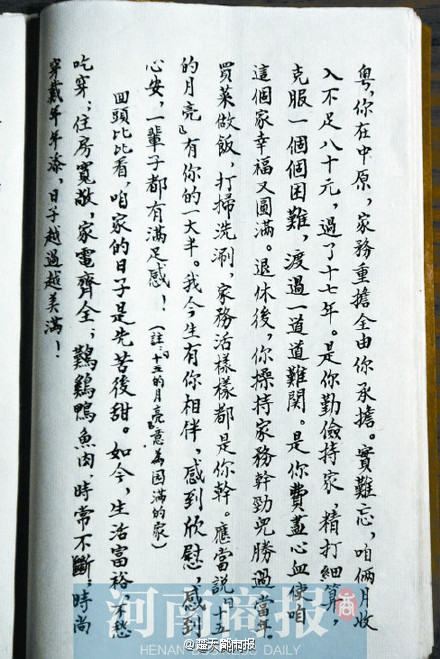 粵，你在中原，家務重擔全由你承擔。實難忘，咱倆月收
入不足八十元，過了十七年。是你勤儉持家，精打細算，
克服一個個困難，渡過一道道難関。是你費盡心血使咱
這個家幸福又圓滿。退休後，你操持家務幹勁兒勝過當年，
買菜做飯，打掃洗涮，家務活樣樣都是你幹。應當説『十五
的月亮』有你的一大半。我今生有你相伴，感到欣慰，感到
心安，一輩子都有滿足感！（註：『十五的月亮』意為圓滿的家）
回頭比比看，咱家的日子是先苦後甜。如今，生活富裕，不愁
吃穿；住房寬敞，家電齊全；鷄鴨魚肉，時常不斷；時尚
穿戴年年添，日子越過越美滿！
河南商报
商
HENAN BUSINESS DAILY
@楚天都市报